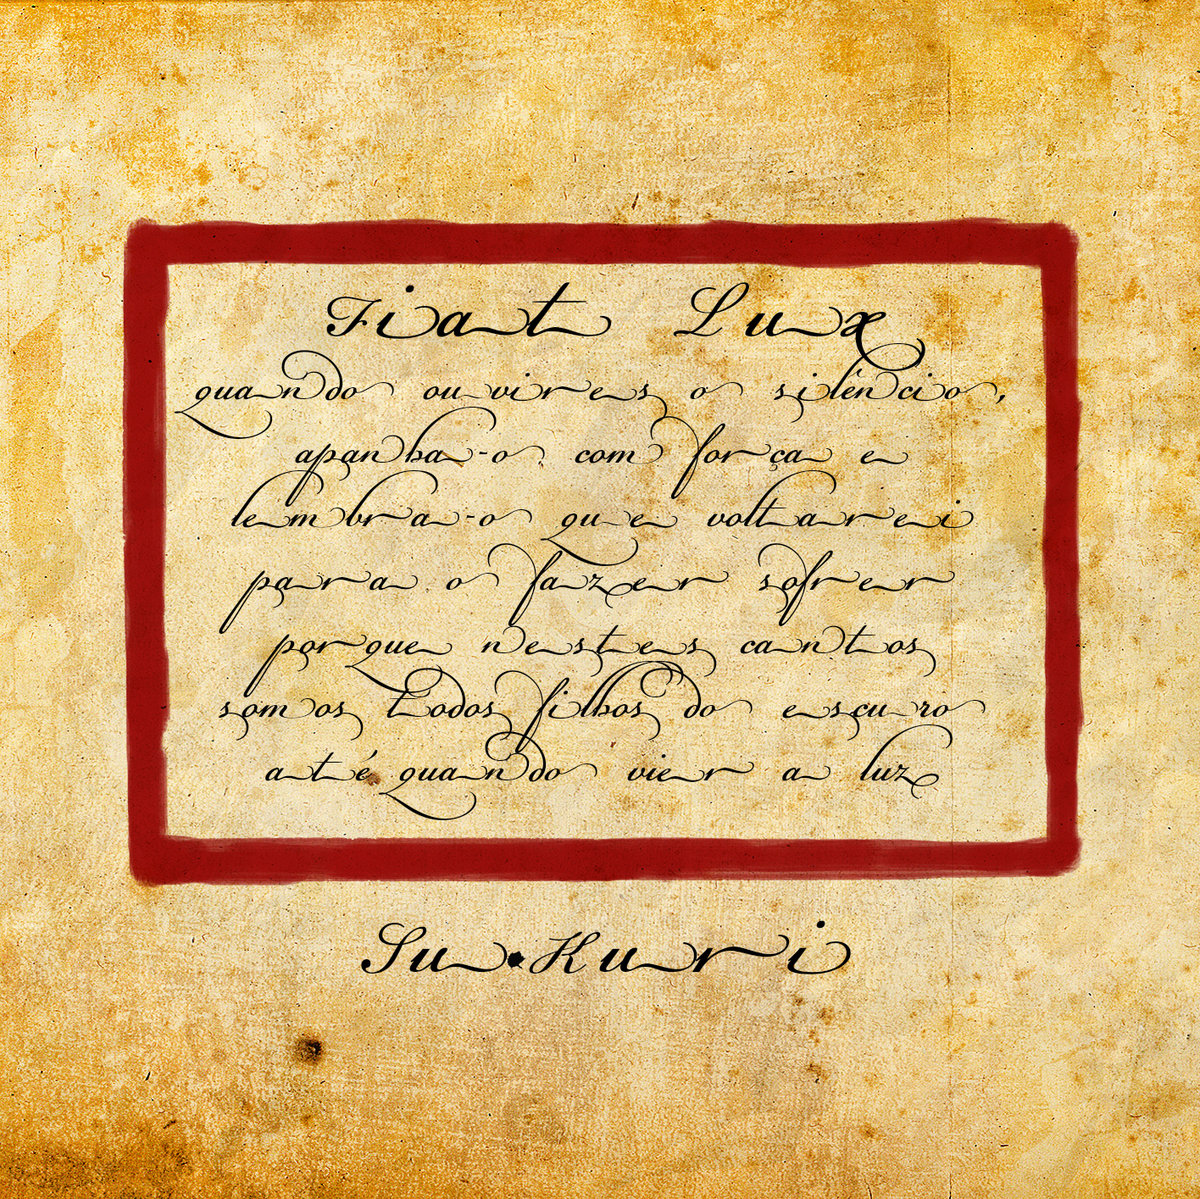 Fiat Lux
quando ouvires o silêncio,
apanha-o com força e
lembra-o que voltarei
para o fazer sofrer
porque nestes cantos
somos todos filhos do escuro
até quando vier a luz
Su•Kuri